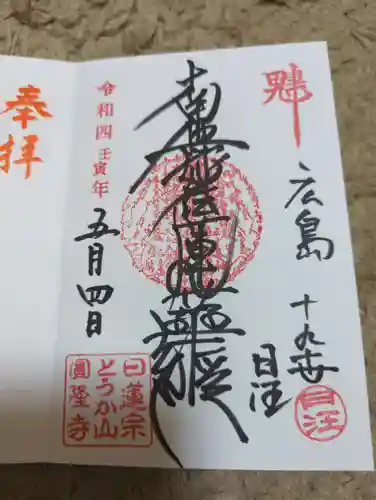 広島
十九世
日汪
日汪
南無妙法蓮華経
令和四壬寅年
五月四日
日蓮宗
とうか山
圓隆寺
奉拝